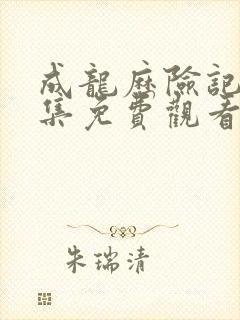 成龍歷險記
集免費觀看
朱瑞清